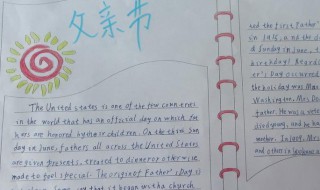 父亲节
The United States is one of the few countries
in the world that has an official day on which fa
hers are honored by their children. On the third Sun
day in June, fathers all across the United States
are given presents, treated to dinner or otherwise
made to feel special. The origin of Father's Day is
it began with a church
the first Father'
in June, t
birthday!
er's Day occurred
the holiday was Mrs
Washington, Mrs. Do
father. He was a vete
died young, and he ha
mother. In 1909, Mrs
and others in